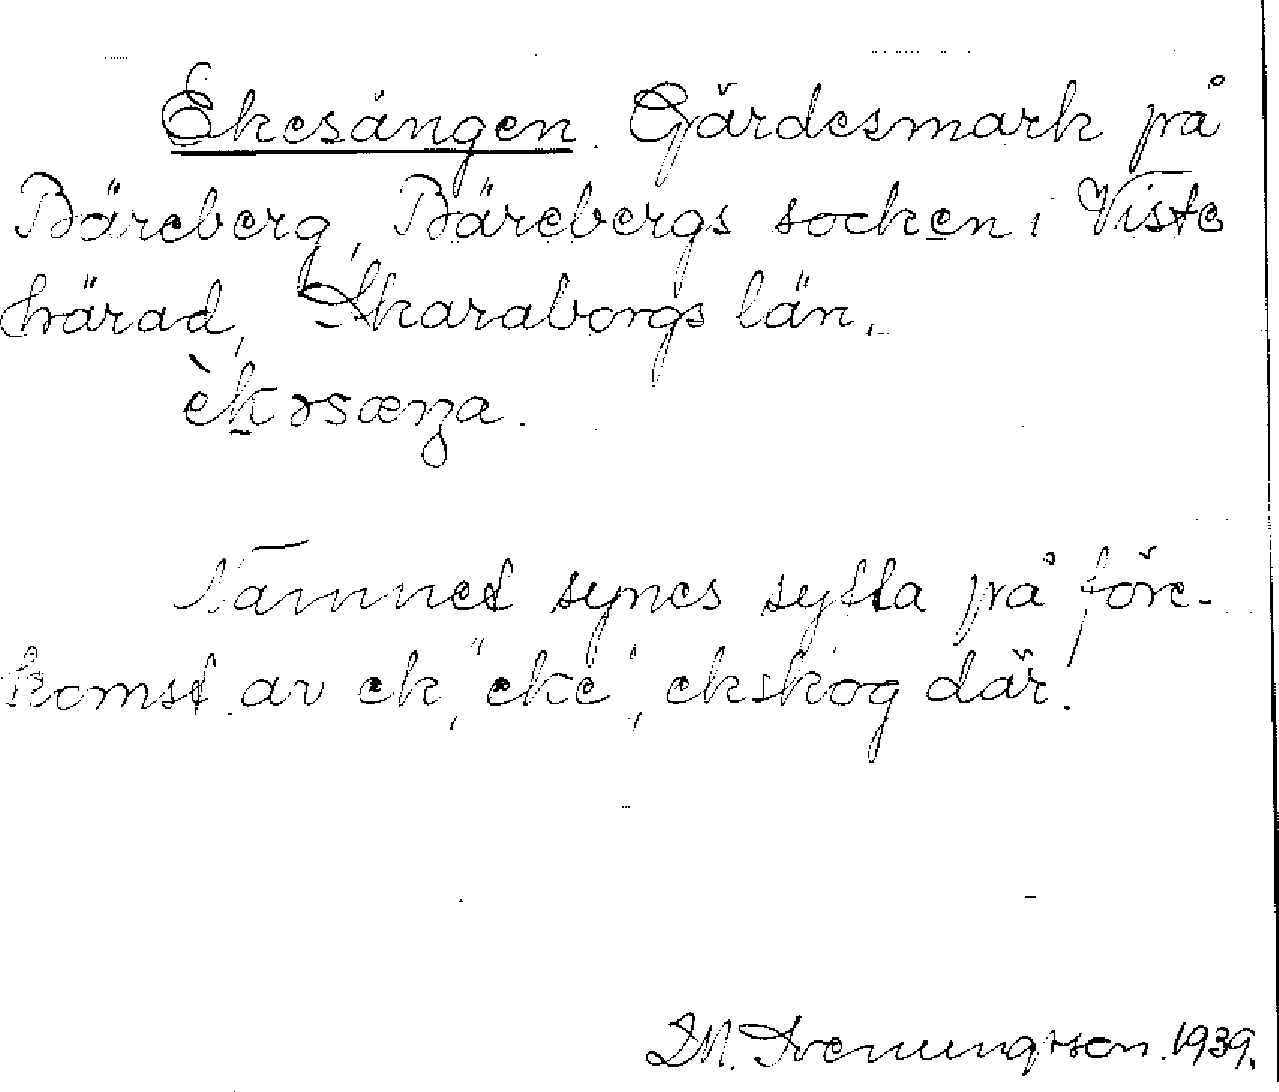 Ekesängen. Gärdesmark på
Bäreberg, Bärebergs socken i Viste
härad, Skaraborgs län.
èkəsæŋa.
Namnet synes syfta på före-
komst av ek, "eke", ekskog där.
D.M. Svenungsson. 1939.